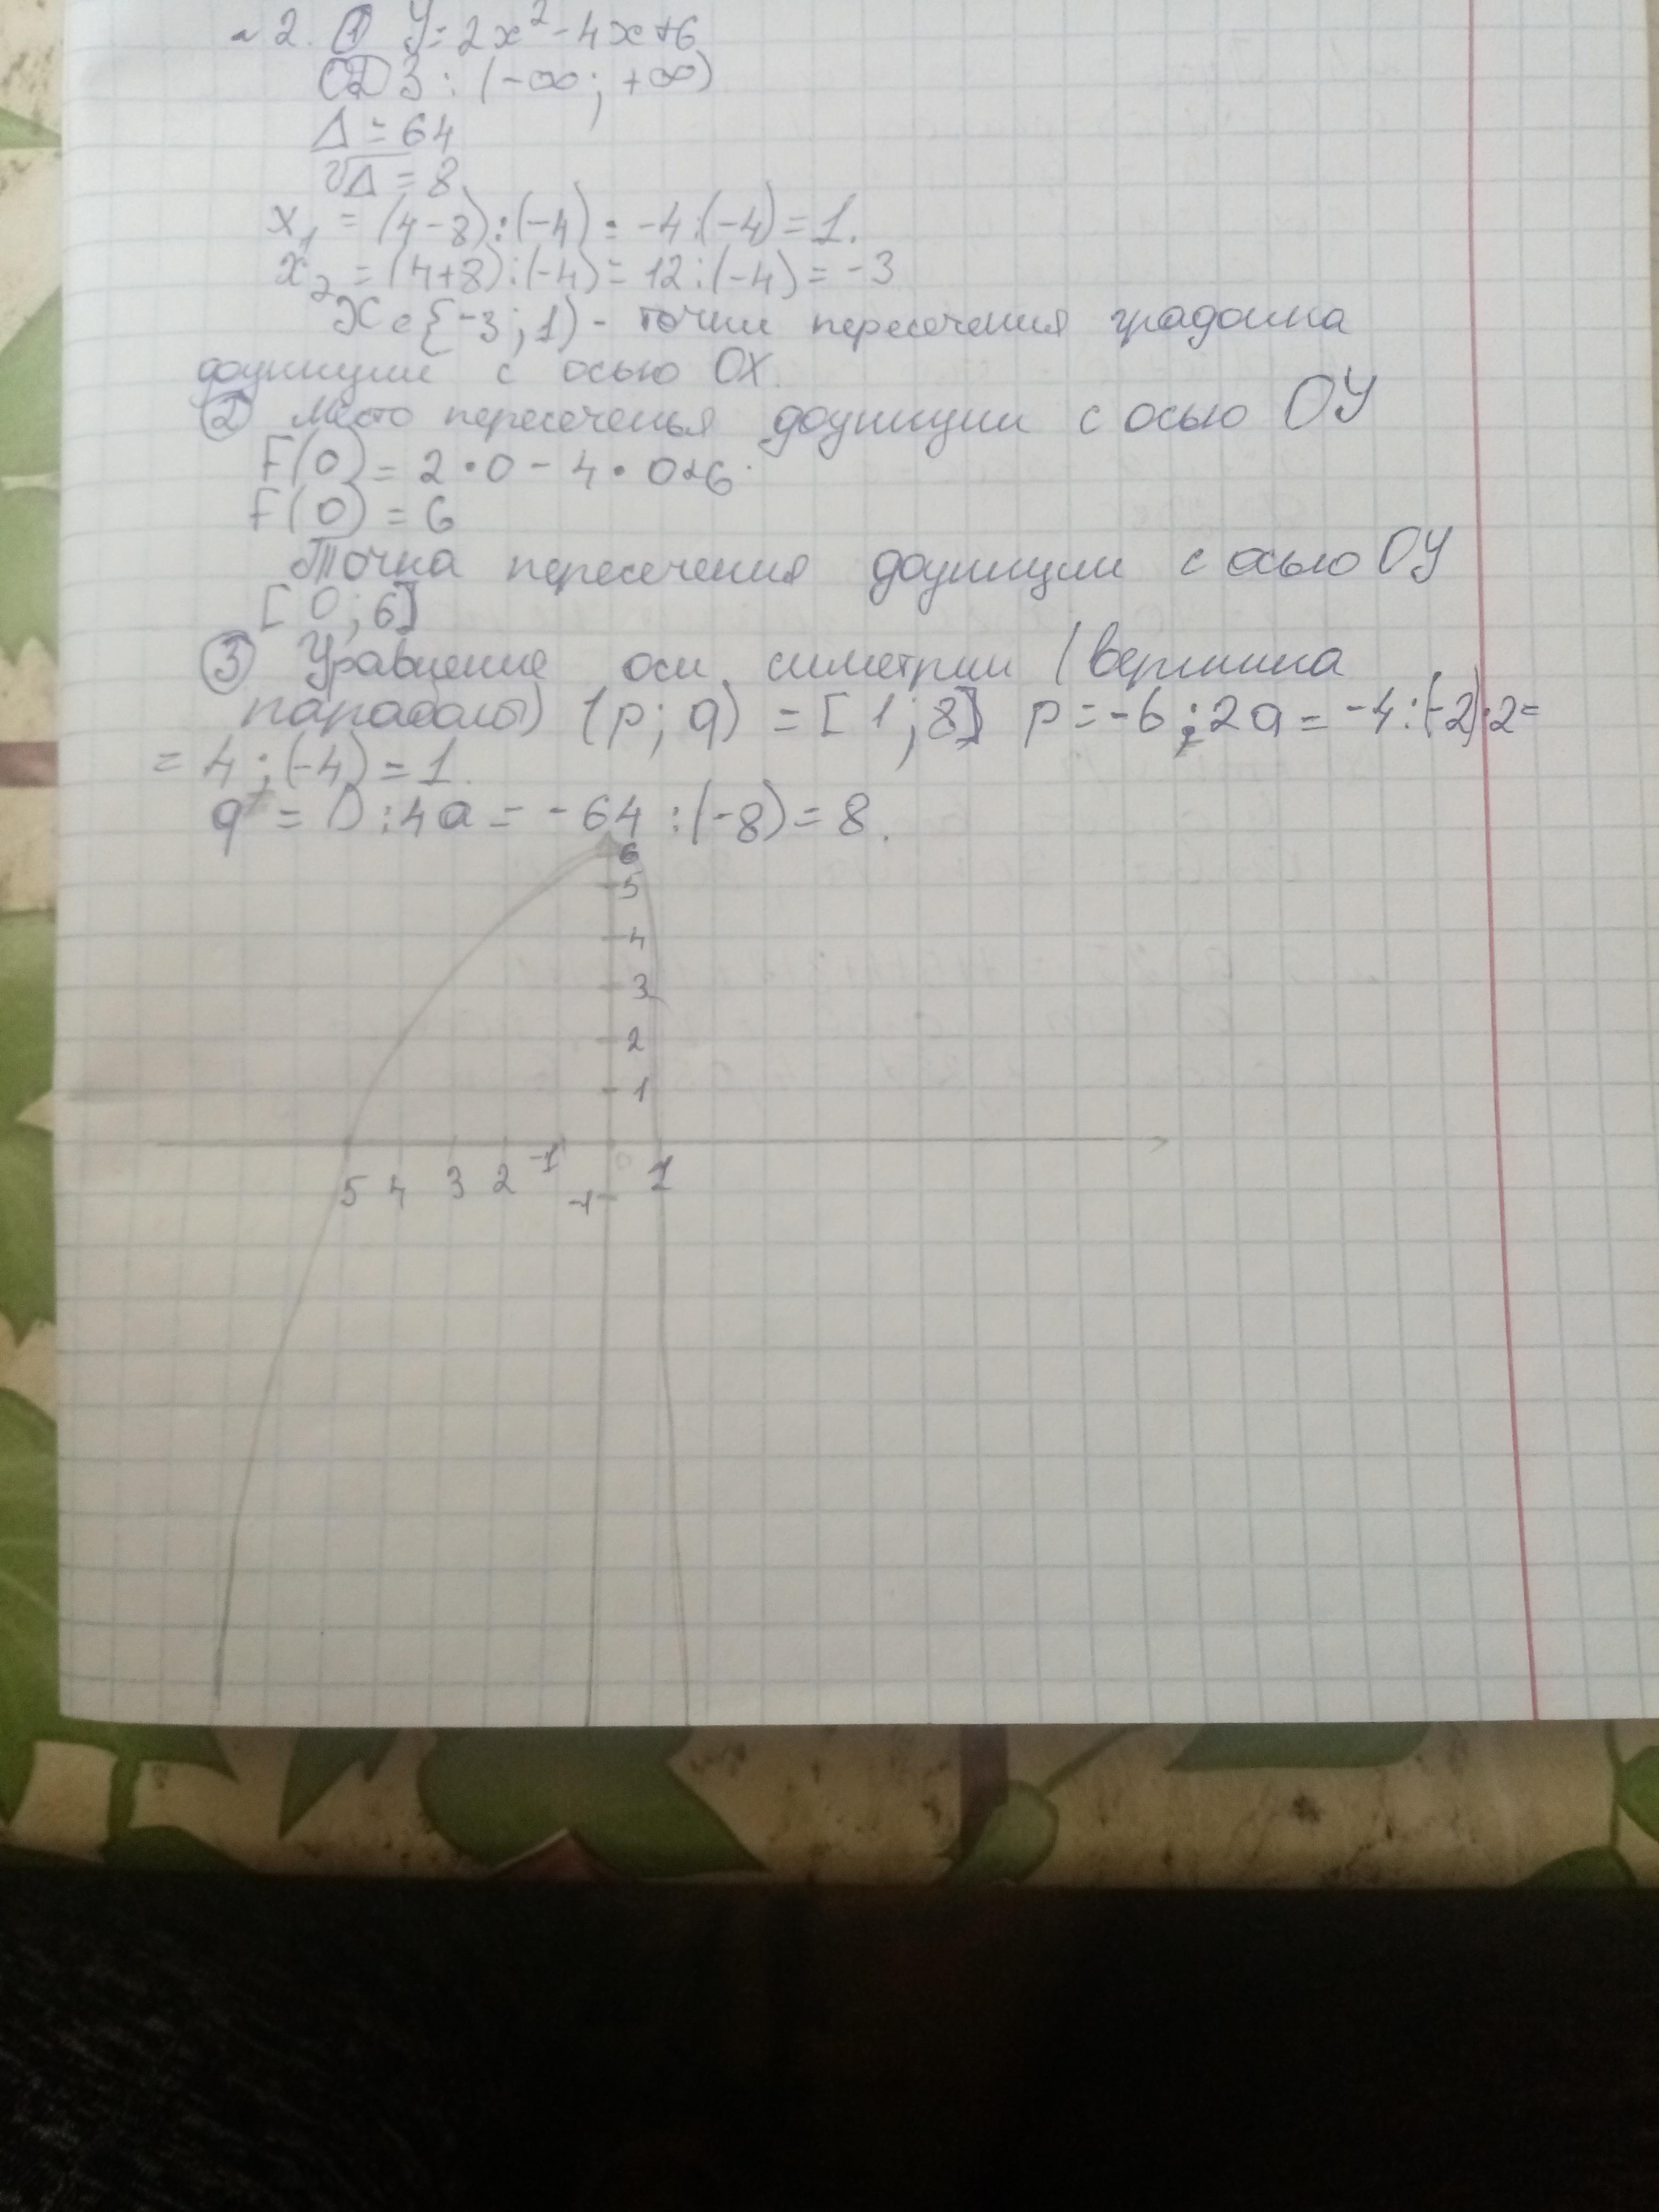 №2. ① y=2x²-4x+6
ОДЗ: (-∞; +∞)
Δ=64
√Δ=8
x₁=(4-8):(-4)=-4:(-4)=1.
x₂=(4+8):(-4)=12:(-4)=-3
Xє{-3;1) - точки пересечения графика
функции с осью OX.
② Место пересеченья функции с осью ОУ
F(0)=2•0-4•0+6.
F(0)=6
Точка пересечения функции с осью ОУ
[0;6]
③ Уравнение оси симетрии (вершина
параболы) (p;q)=[1;8] p=-6:2a=-4:(-2)•2=
=4:(-4)=1.
q=D:4a=-64:(-8)=8.
6
5
4
3
2
1
5 4 3 2 -1 0 1
-1